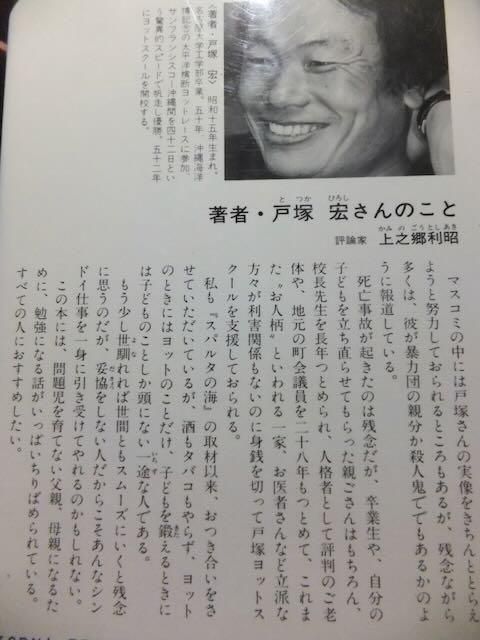 〈著者・戸塚 宏〉 昭和十五年生まれ。
名古屋大学工学部卒業。五十年、沖縄海洋
博記念の太平洋横断ヨットレースに参加、
サンフランシスコー沖縄間を四十二日とい
う驚異的スピードで帆走し優勝。五十二年
にヨットスクールを開校する。
とつか ひろし
著者・戸塚 宏さんのこと
かみ の ごう とし あき
評論家 上之郷利昭
マスコミの中には戸塚さんの実像をきちんととらえ
ようと努力しておられるところもあるが、残念ながら
多くは、彼が暴力団の親分か殺人鬼ででもあるかのよ
うに報道している。
死亡事故が起きたのは残念だが、卒業生や、自分の
子どもを立ち直らせてもらった親ごさんはもちろん、
校長先生を長年つとめられ、人格者として評判のご老
体や、地元の町会議員を二十八年もつとめて、これま
た〝お人柄〟といわれる一家、お医者さんなど立派な
方々が利害関係もないのに身銭を切って戸塚ヨットス
クールを支援しておられる。
私も『スパルタの海』の取材以来、おつき合いをさ
せていただいているが、酒もタバコもやらず、ヨット
のときにはヨットのことだけ、子どもを鍛えるときに
きた
は子どものことしか頭にない一途な人である。
いちず
もう少し世馴れれば世間ともスムーズにいくと残念
よな
に思うのだが、妥協をしない人だからこそあんなシン
だきょう
ドイ仕事を一身に引き受けてやれるのかもしれない。
この本には、問題児を育てない父親、母親になるた
めに、勉強になる話がいっぱいちりばめられている。
すべての人におすすめしたい。